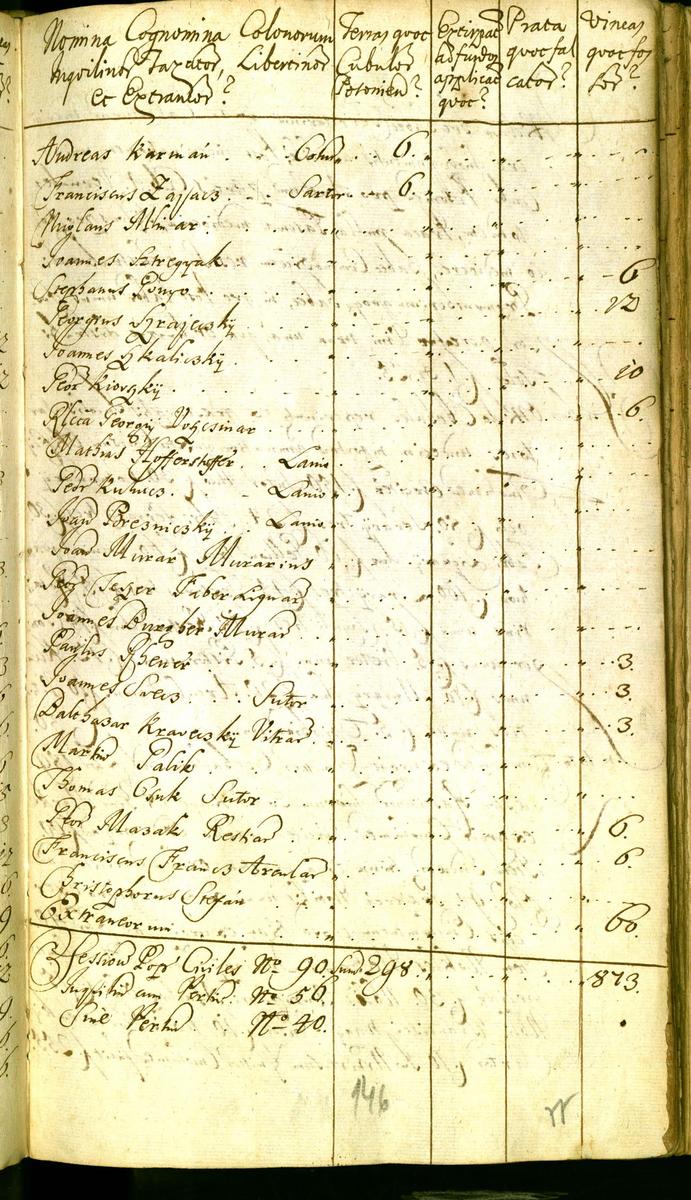 Nomina Cognomina Colonorum
Inquilinor, Taxator, Libertinor
et Extraneor?
Terras quot
Cubulor
Posonien?
Extirpat
ad fundos
applicat
quot?
Prata
quot fal
cator?
Vineas
quot fos
sor?
Andreas Karmán 6
Franciscus Zajacz Sartor 6
Joannes Sztregyak
Stephanus Ponyo 6
Georgius Szrajecsky 12
Joannes Szkaliczky
Petr Kiovsky 10
Rlicta Georgy 6
Mathias Hofferstoffer Lanio
Petr Kulucs Lanio
Joan Brezniczky Lanio
Joan Murár Murarius
Faber Lignar
Joannes Burgher Murar
Paulus Rhener 3
Joannes Svecz Sutor 3
Balthasar Kraveczky Vitrar 3
Martin Palik
Thomas Csuk Sutor
Petr Mazak Restiar 6
Franciscus Francz Arcular 6
Christophorus Stefan
Extraneorum 60
Session Popr Civiles No 90 Sunt 298 873
Inquilin cum Pertin No 56
Sine Pertin No 40
146